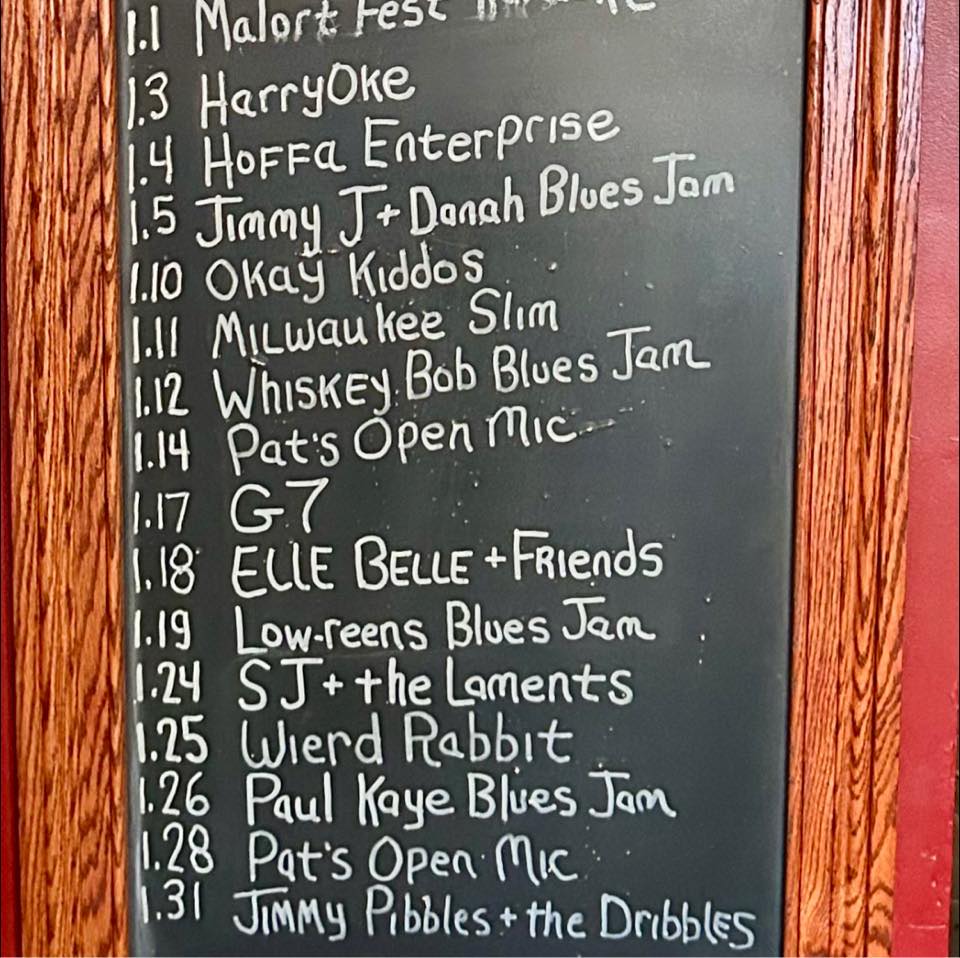 1.1 Malort Fest
1.3 HarryOke
1.4 Hoffa Enterprise
1.5 Jimmy J + Danah Blues Jam
1.10 Okay Kiddos
1.11 Milwaukee Slim
1.12 Whiskey Bob Blues Jam
1.14 Pat's Open Mic
1.17 G7
1.18 Elle Belle + Friends
1.19 Low-reens Blues Jam
1.24 SJ + the Laments
1.25 Wierd Rabbit
1.26 Paul Kaye Blues Jam
1.28 Pat's Open Mic
1.31 Jimmy Pibbles + the Dribbles